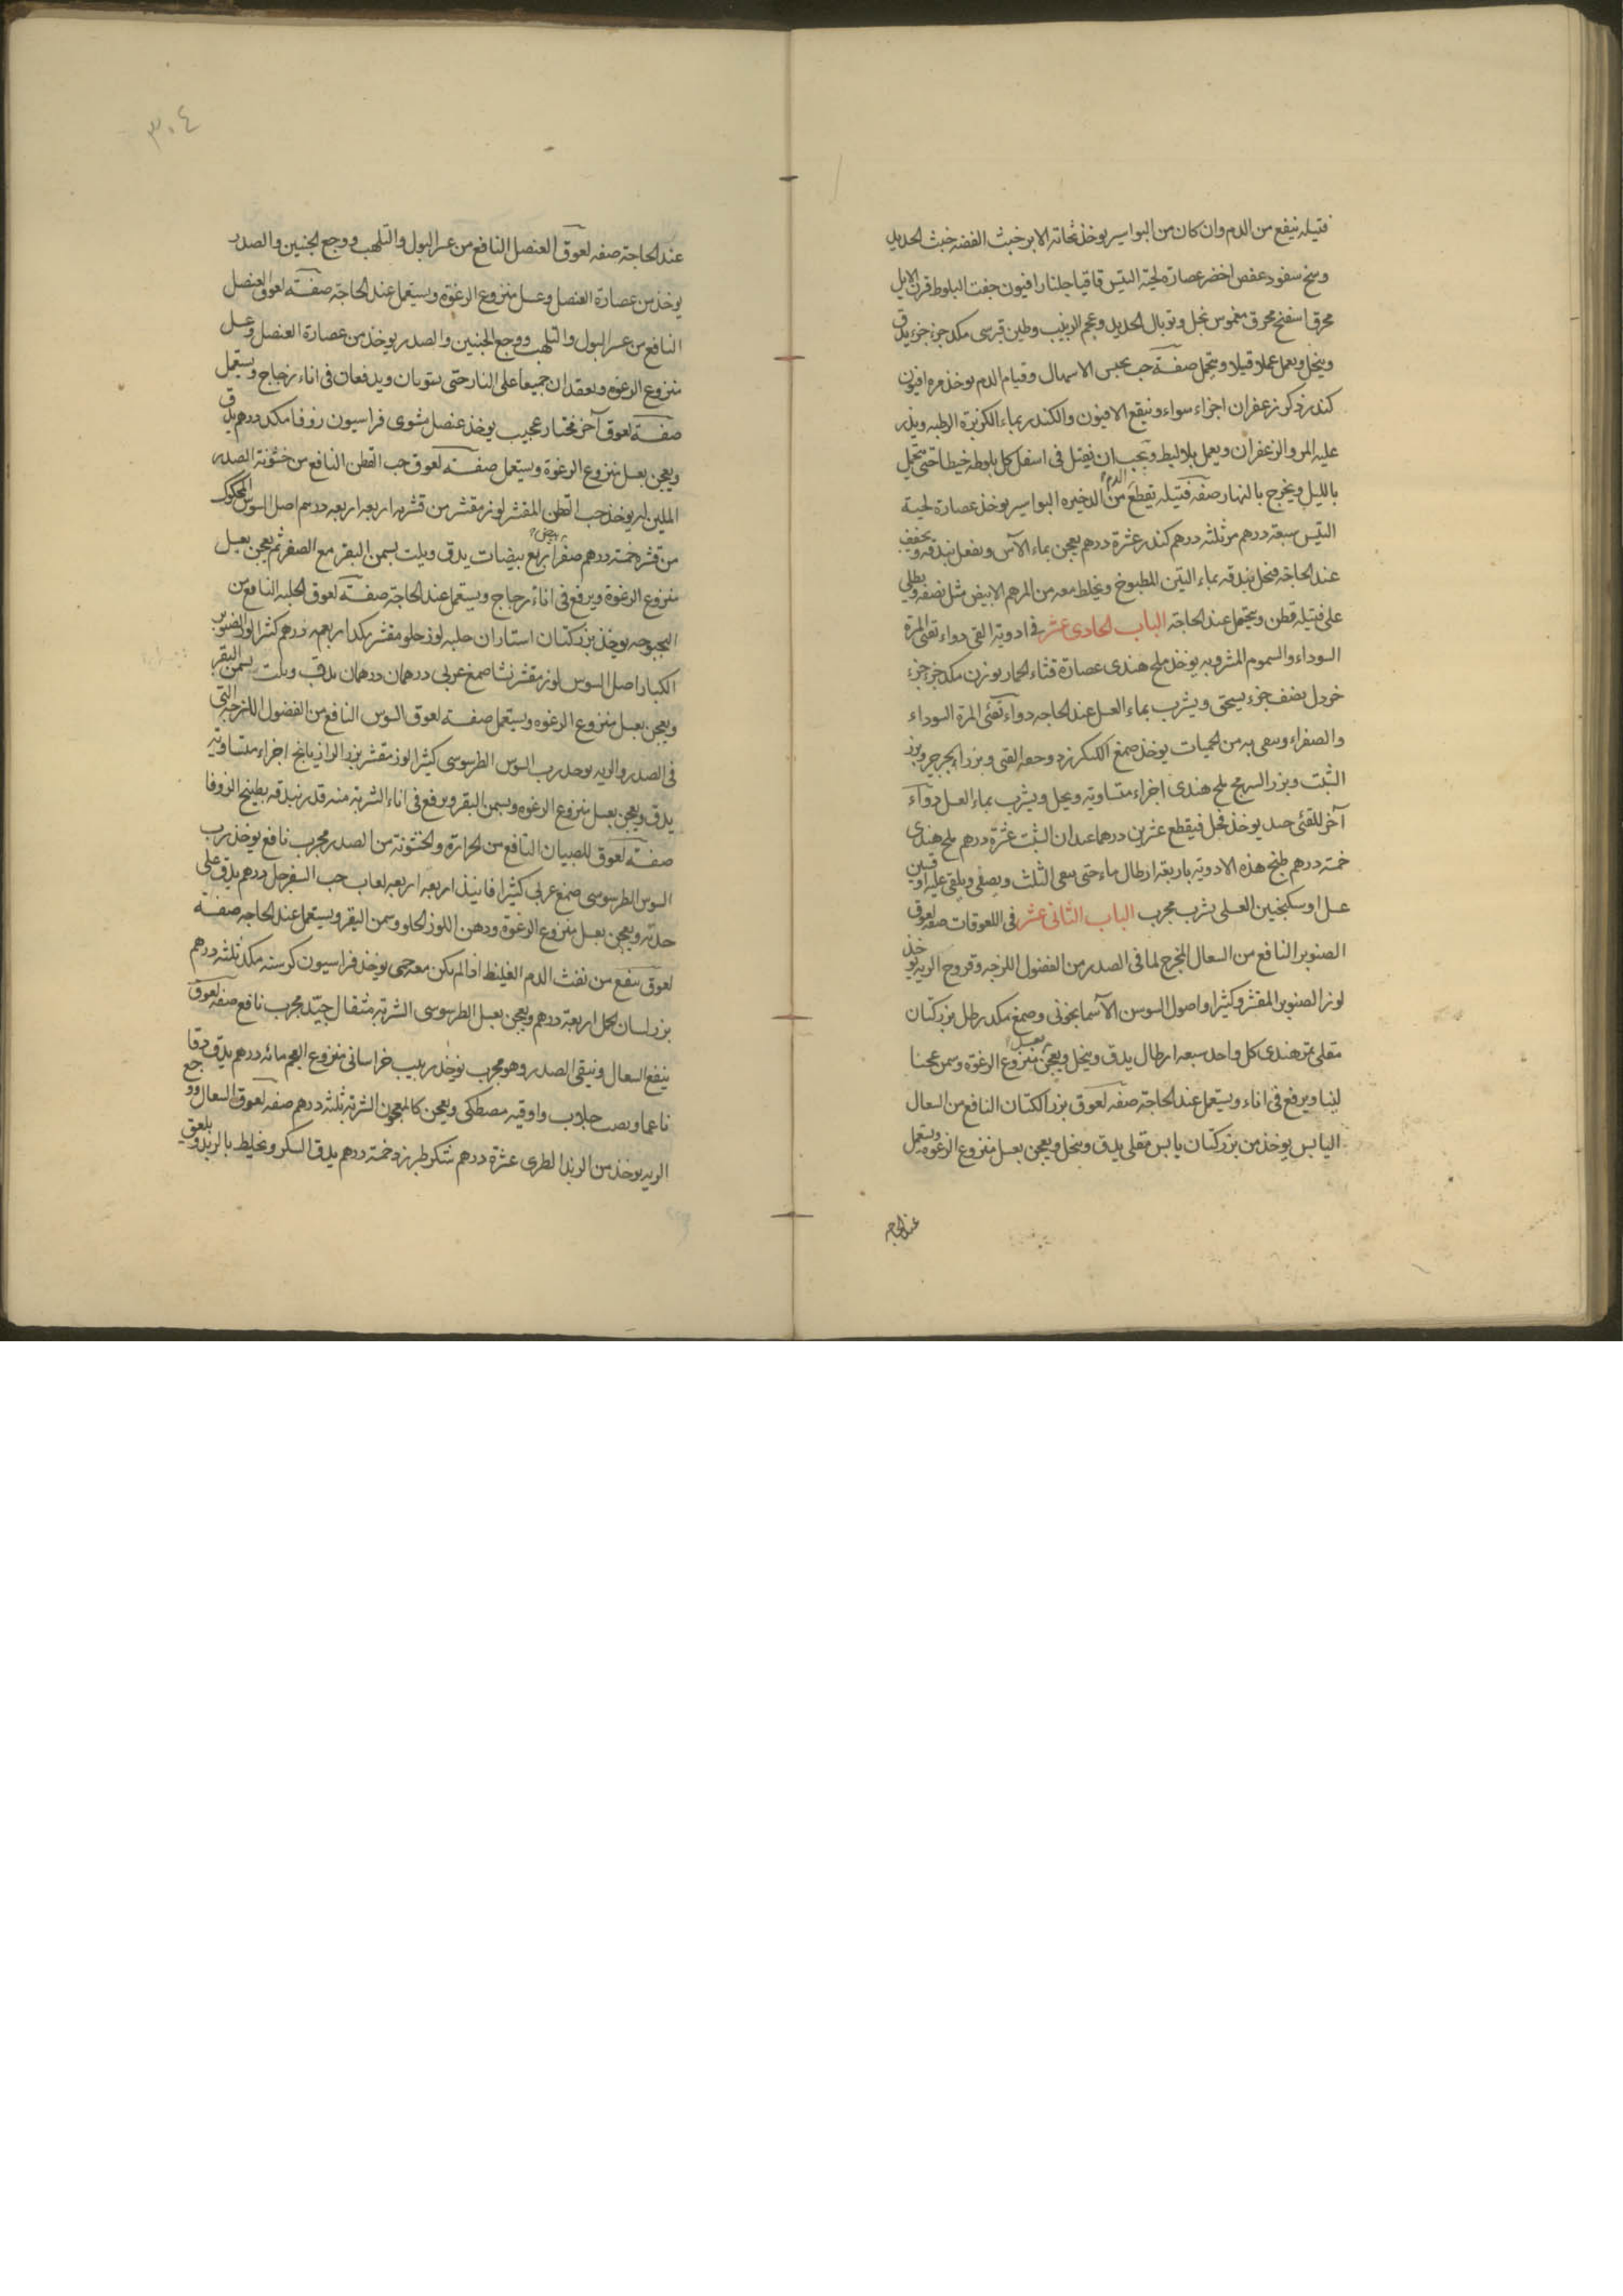 فتيله ينفع من الدم وان كان من البواسير يوخذ نحاته الابر خبث الفضه خبث الحديد
وسخ سفود عفص اخضر عصارة لحية التيس قاقيا جلنار افيون جفت البلوط قرن الايل
محرق اسفنج محرق مغموس بخل وتوبال الحديد وعجم الزبيب وطين قبرسى مكد جزء جزء يدق
وينخل ويعمل عملا ويتحمل صفة حب يحبس الاسهال وقيام الدم يوخذ مر افيون
كندر ذكر زعفران اجزاء سواء وينقع الافيون والكندر بماء الكزبرة الرطبه ويذر
عليه المر والزعفران ويعمل بلاليط ويجب ان يفتل فى اسفل كل بلوطه خيطا حتى يتحمل
بالليل ويخرج بالنهار صفه فتيله تقطع الدم من البواسير يوخذ عصارة لحية
التيس سبعة درهم مر ثلثه درهم كندر عشرة درهم يعجن بماء الآس ويفعل بندقه ويجفف
عند الحاجة بندقه بماء التين المطبوخ ويخلط معه من المرهم الابيض مثل نصفه ويطلى
على فتيله قطن ويتحمل عند الحاجة الباب الحادى عشر فى ادوية القى دواء تقئ المرة
السوداء والسموم المشروبه يوخذ ملح هندى عصارة قثاء الحمار بورق مكد جزء جزء
خردل نصف جزء يسحق ويشرب بماء العسل عند الحاجه دواء تقئ المرة السوداء
والصفراء من الحميات يوخذ صمغ الكنكرزد القى وبزر الجرجير وبزر
الشبت وبزر ملح هندى اجزاء متساوية وينخل ويشرب بماء العسل دواء
آخر للقئ يوخذ فجل فيقطع عشرين درهما عيدان الشبت عشرة درهم ملح هندى
خمسة درهم طبخ هذه الادويه باربعة ارطال ماء حتى يبقى الثلث ويصفى ويلقى عليه اوقيتين
عسل او سكنجبين العسلى يشرب مجرب الباب الثانى عشر فى اللعوقات صفه لعوق
الصنوبر النافع من السعال المخرج لما فى الصدر من الفضول اللزجه وقروح الريه يوخذ
لوز الصنوبر المقشر وكثيرا واصول السوسن الآسمانجونى وصمغ مكد رطل بزر كتان
مقلى تمر هندى كل واحد سبعه ارطال يدق وينخل ويعجن بعسل منزوع الرغوة وسمن عجنا
لينا ويرفع فى اناء ويستعمل عند الحاجة صفه لعوق بزر الكتان النافع من السعال
اليابس يوخذ من بزر كتان يابس مقلى يدق وينخل ويعجن بعسل منزوع الرغوه ويستعمل
عند الحاجه
٣٠٤
عند الحاجة صفه لعوق العنصل النافع من عسر البول والتلهب ووجع الجنبين والصدر
يوخذ من عصارة العنصل وعسل منزوع الرغوة ويستعمل عند الحاجة صفة لعوق العنصل
النافع من عسر البول والتلهب ووجع الجنبين والصدر يوخذ من عصارة العنصل وعسل
منزوع الرغوه ويعقدان جميعا على النار حتى يستويان ويدفعان فى اناء زجاج ويستعمل
صفة لعوق آخر مختار عجيب يوخذ عنصل مشوى فراسيون زوفا مكد درهم يدق
ويعجن بعسل منزوع الرغوة ويستعمل صفة لعوق حب القطن النافع من خشونة الصدر
الملين له يوخذ حب القطن المقشر لوز مقشر من قشريه اربعه اربعه درهم اصل السوس المحكوك
من قشره خمسة درهم صفرة اربع بيضات يدق ويلت بسمن البقر مع الصفر ثم يعجن بعسل
منزوع الرغوة ويرفع فى اناء زجاج ويستعمل عند الحاجة صفة لعوق الحلبه النافع من
البحوحه يوخذ بزر كتان استاران حلبه لوز حلو مقشر مكد اربعه درهم كثيرا لوز الصنوبر
الكبار اصل السوس لوز مقشر نشا صمغ عربى درهمان درهمان يدق ويلت بسمن البقر
ويعجن بعسل منزوع الرغوه ويستعمل صفة لعوق السوس النافع من الفضول اللزجه التى
فى الصدر والريه يوخذ رب السوس الطرسوسى كثيرا لوز مقشر بزر الرازيانج اجزاء متساوية
يدق ويعجن بعسل منزوع الرغوه وبسمن البقر ويرفع فى اناء الشربة منه قدر بندقه بطبيخ الزوفا
صفة لعوق للصبيان النافع من الحرارة والخشونة من الصدر مجرب نافع يوخذ رب
السوس الطرسوسى صمغ عربى كثيرا فانيذ اربعه اربعه لعاب حب السفرجل درهم يدق على
حدته ويعجن بعسل منزوع الرغوة ودهن اللوز الحلو وسمن البقر ويستعمل عند الحاجه صفة
لعوق ينفع من نفث الدم الغليظ اذا لم يكن معه حمى يوخذ فراسيون كرسنه مكد ثلثه درهم
بزر لسان الحمل اربعة درهم ويعجن بعسل الطرسوسى الشربة مثقال جيد مجرب نافع صفه لعوق
ينفع السعال وينقى الصدر وهو مجرب يوخذ زبيب خراسانى منزوع العجم مائه درهم يدق دقا
ناعما ويصب جلاب واوقيه مصطكى ويعجن كالمعجون الشربة ثلثه درهم صفه لعوق السعال ووجع
الريه يوخذ من الزبد الطرى عشرة درهم سكر طبرزد خمسة درهم يدق السكر ويخلط بالزبد ويلعق